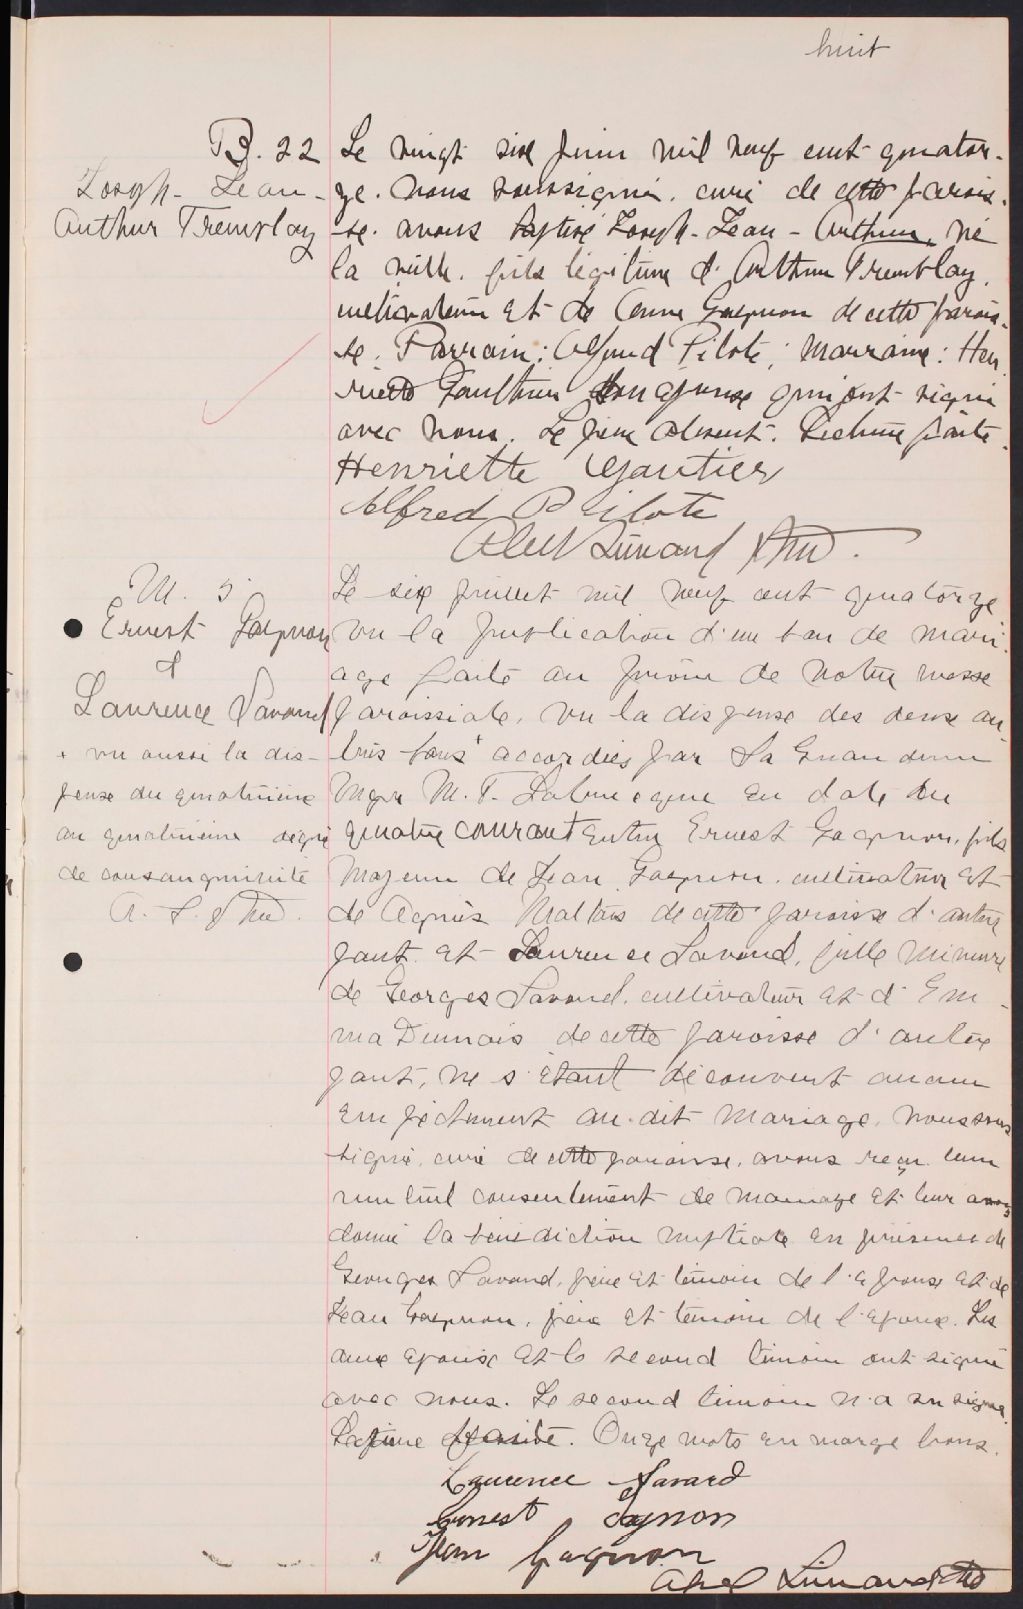 huit
B. 22
Joseph - Jean -
Arthur Tremblay
Le vingt six juin mil neuf cent quator-
ze. nous soussigné, curé de cette parois-
se. avons baptisé Joseph - Jean - Arthur, né
la veille, fils légitime d'Arthur Tremblay,
cultivateur et de Anna Gagnon de cette parois-
se. Parrain: Alfred Pilote; Marraine: Hen-
riette Gauthier son épouse qui ont signé
avec nous. Le père absent. Lecture faite.
Henriette Gautier
Alfred Pilote
Abel Simard Ptre.
M. 5
Ernest Gagnon
&
Laurence Savard
+ vu aussi la dis-
pense du quatrième
au quatrième degré
de consanguinité
A. S. Ptre.
Le six juillet mil neuf cent quatorze
vu la publication d'un ban de mari-
age faite au prône de notre messe
paroissiale, vu la dispense des deux au-
tres bans + accordées par Sa Grandeur
Mgr M. T. Labrecque en date du
quatre courant entre Ernest Gagnon, fils
majeur de Jean Gagnon, cultivateur et
de Agnès Maltais de cette paroisse d'autre
part et Laurence Savard, fille mineure
de Georges Savard, cultivateur et d'Em-
ma Dumais de cette paroisse d'autre
part, ne s'étant découvert aucun
empêchement au dit mariage, nous sous-
signé, curé de cette paroisse, avons reçu leur
mutuel consentement de mariage et leur avons
donné la bénédiction nuptiale en présence de
Georges Savard, père et témoin de l'épouse et de
Jean Gagnon, père et témoin de l'époux. Les
deux époux et le second témoin ont signé
avec nous. Le second témoin n'a su signer.
Lecture faite. Onze mots en marge bons.
Laurence Savard
Ernest Gagnon
Jean Gagnon
Abel Simard Ptre